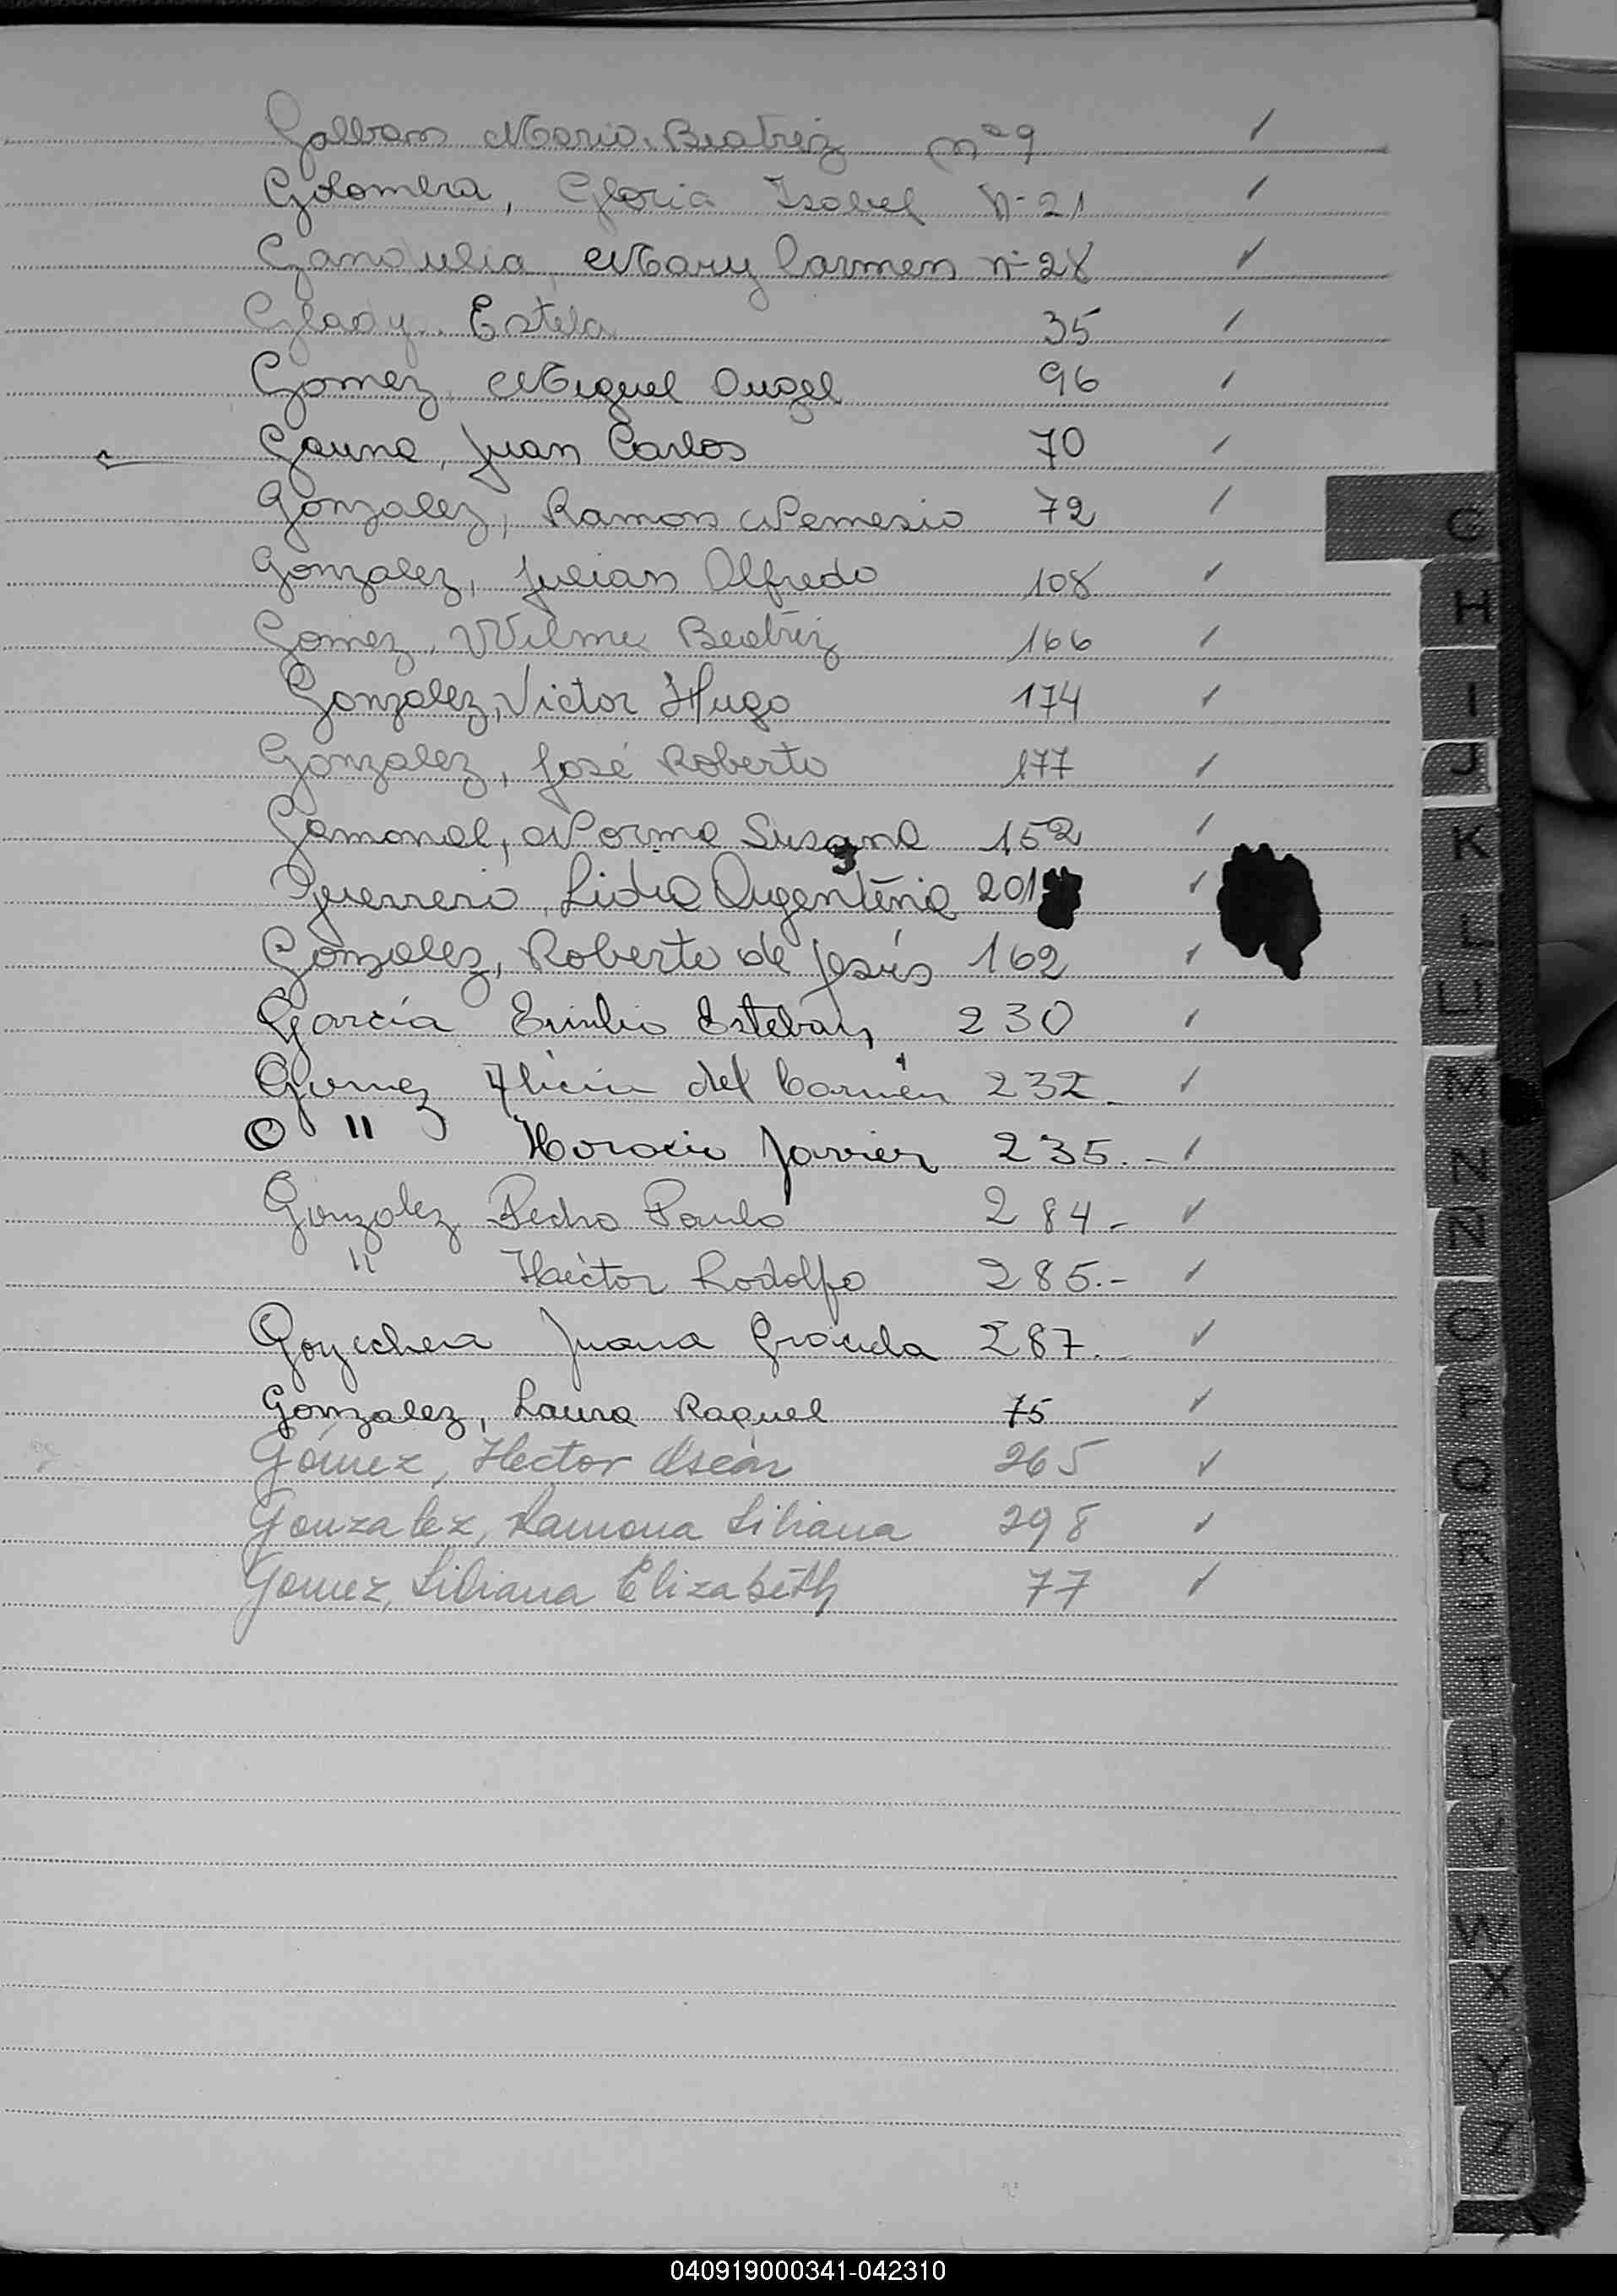 Galban Maria Beatriz nº 9
Golomba, Gloria Isabel Nº 21
Gandulia, Mary Carmen nº 28
Glady. Estela 35
Gomez, Miguel Angel 96
Gauna, Juan Carlos 70
Gonzalez, Ramon Nemesio 72
Gonzalez, Julian Alfredo 108
Gomez, Wilma Beatriz 166
Gonzalez, Victor Hugo 174
Gonzalez, José Roberto 177
Gamonal, Norma Susana 152
Guerrero, Lidia Argentina 201
Gonzalez, Roberto de Jesús 162
García Emilio Esteban 230
Gomez Alicia del Carmen 232.
" Horacio Javier 235.-
Gonzalez Pedro Paulo 284-
" Héctor Rodolfo 285.-
Goyechea Juana Graciela 287.-
Gonzalez, Laura Raquel 75
Gómez, Hector Oscar 265
Gonzalez, Ramona Liliana 298
Gomez, Liliana Elizabeth 77
G
H
I
J
K
L
LL
M
N
Ñ
O
P
Q
R
S
T
U
V
W
X
Y
Z
040919000341-042310